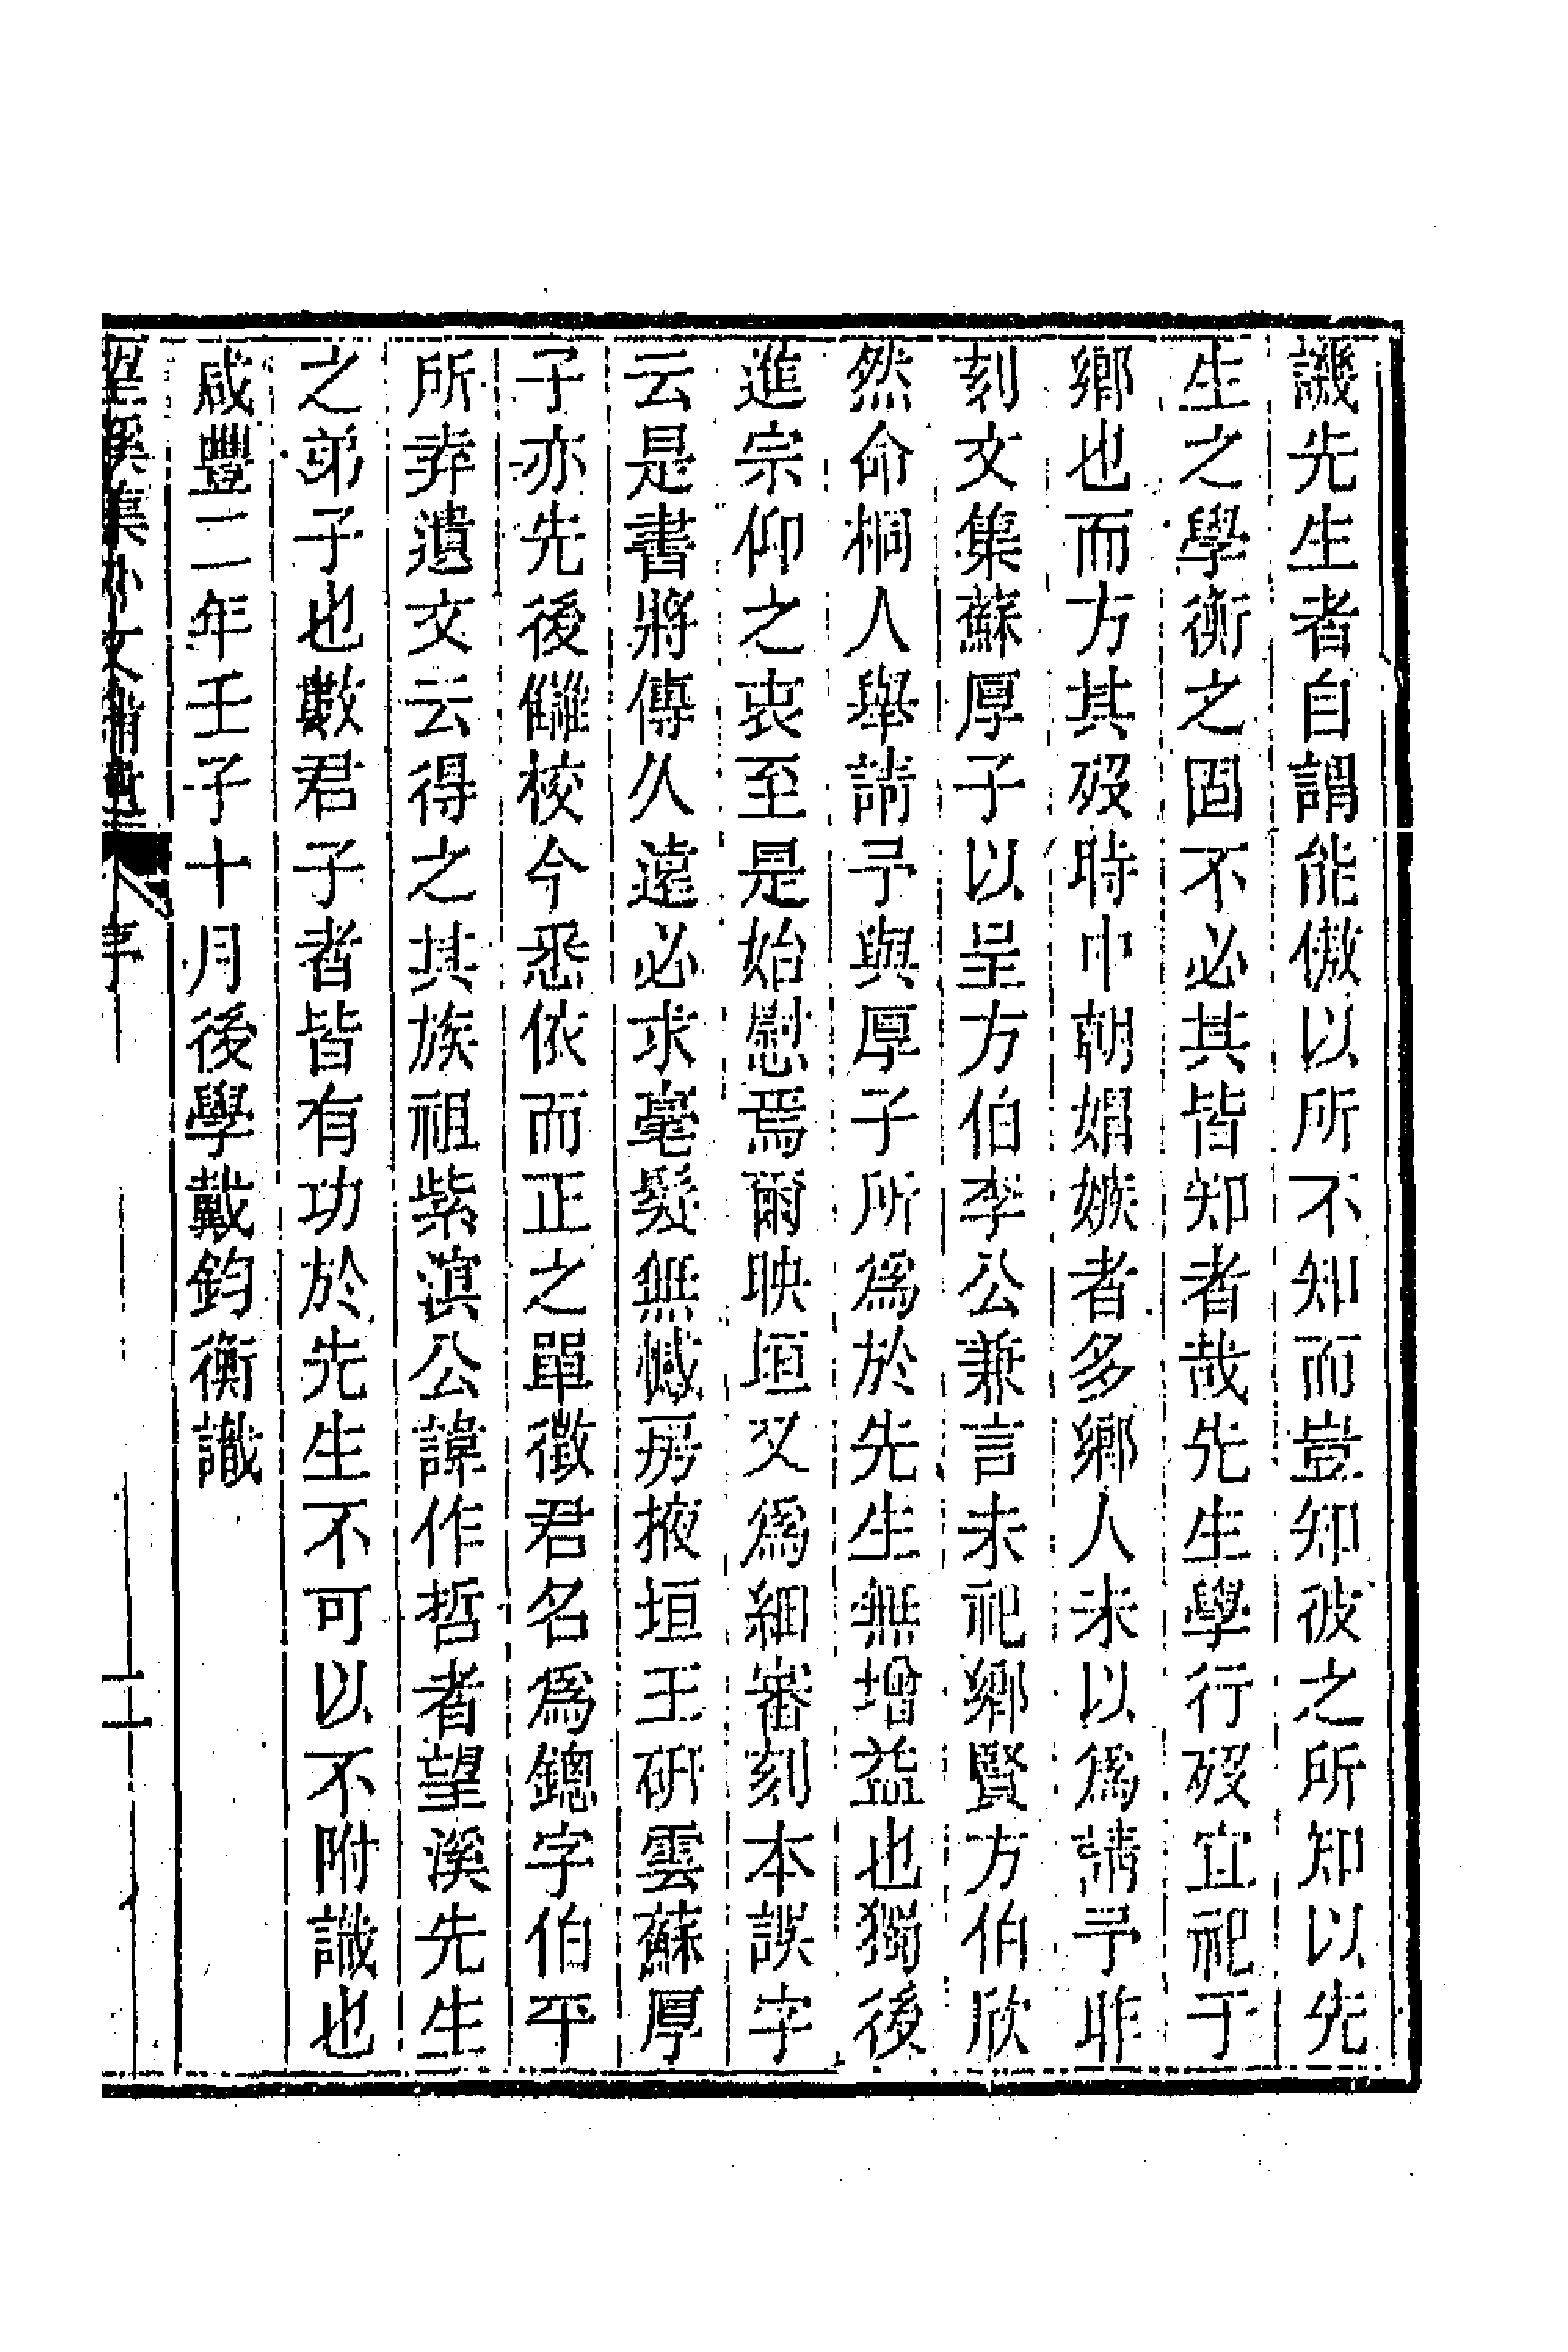 譏先生者自謂能傲以所不知而豈知彼之所知以先
生之學衡之固不必其皆知者哉先生學行歿宜祀于
鄉也而方其歿時中朝媢嫉者多鄉人未以爲請予昨
刻文集蘇厚子以呈方伯李公兼言未祀鄉賢方伯欣
然命桐人舉請予與厚子所爲於先生無增益也獨後
進宗仰之衷至是始慰焉爾映垣又爲細審刻本誤字
云是書將傳久遠必求毫髮無憾房掖垣王硏雲蘇厚
子亦先後讎校今悉依而正之單徵君名爲鏓字伯平
所弆遺文云得之其族祖紫溟公諱作哲者望溪先生
之弟子也數君子者皆有功於先生不可以不附識也
咸豐二年壬子十月後學戴鈞衡識
望溪集外文補遺 序 二